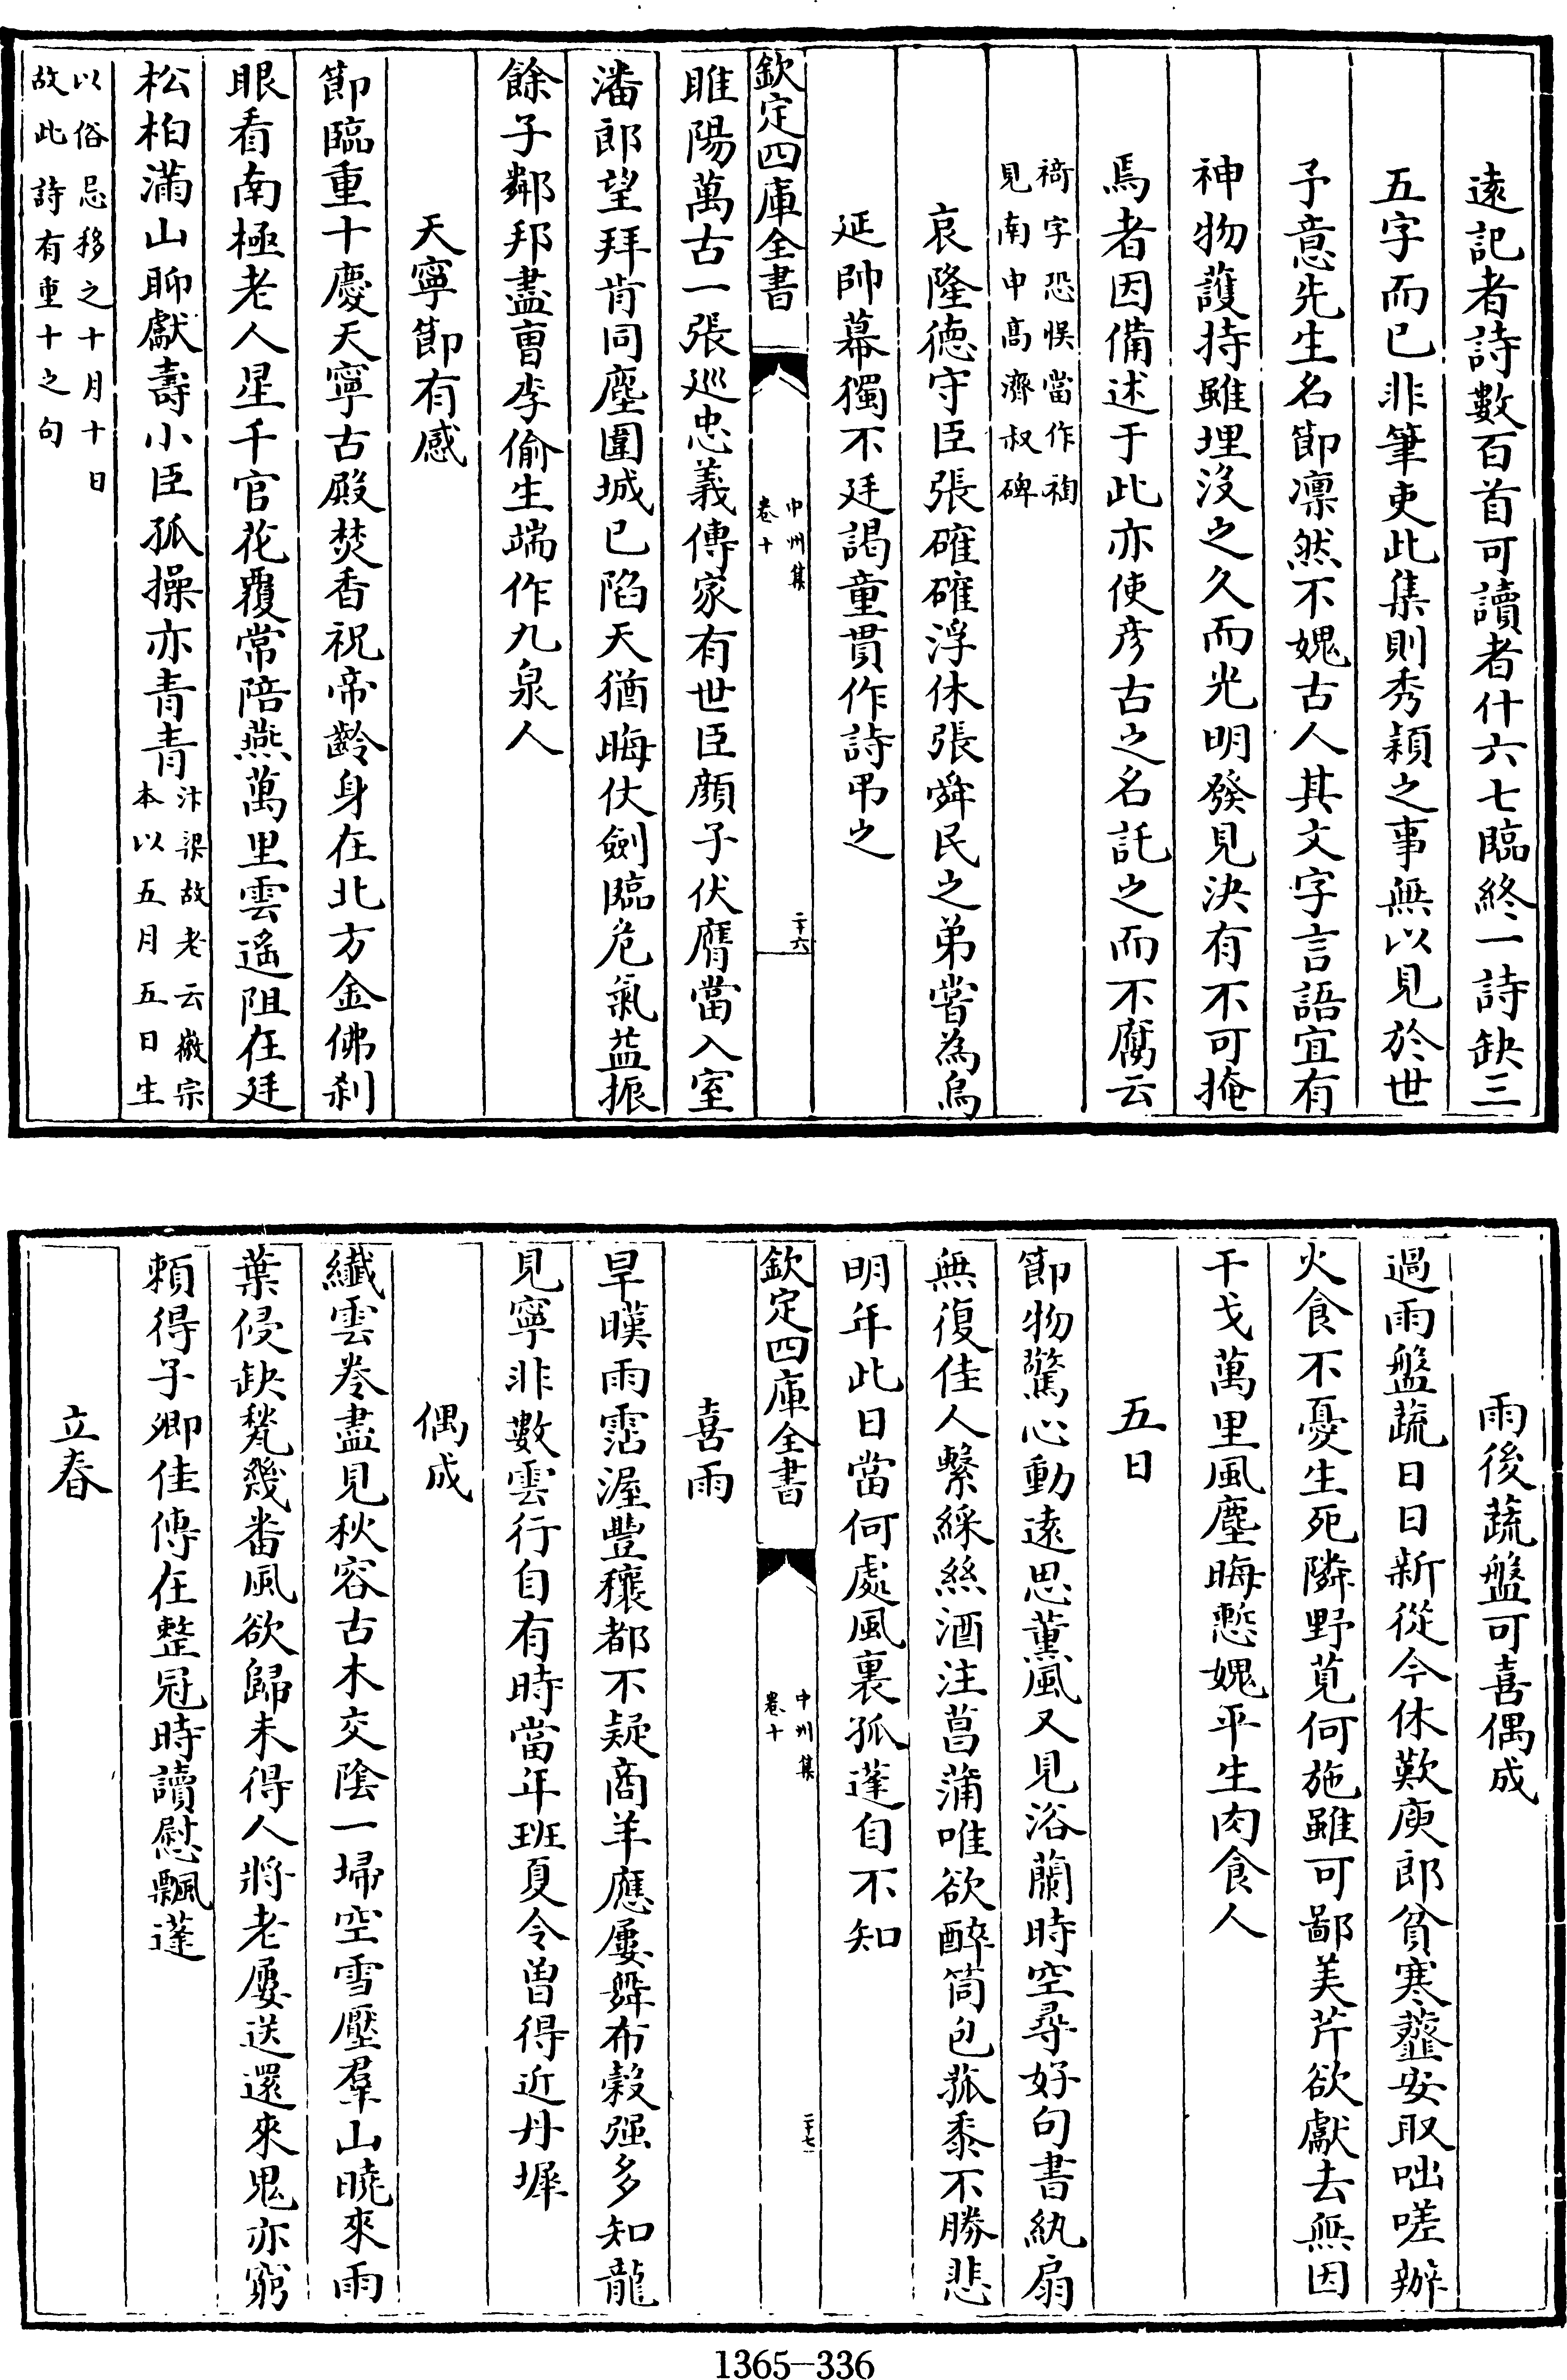 遠記者詩數百首可讀者什六七臨終一詩缺三
五字而已非筆吏此集則秀穎之事無以見於世
予意先生名節凛然不媿古人其文字言語宜有
神物護持雖埋沒之久而光明發見決有不可掩
焉者因備述于此亦使彦古之名託之而不腐云
裿字恐悮當作裪
見南申髙濟叔碑
哀隆德守臣張確確浮休張舜民之弟嘗為鳥
延帥幕獨不廷謁童貫作詩弔之
欽定四庫全書
中州集
卷十
二十六
睢陽萬古一張巡忠義傳家有世臣顔子伏膺當入室
潘郎望拜肯同塵圍城已陷天猶晦仗劍臨危氣益振
餘子鄰邦盡曺李偷生端作九泉人
天寧節有感
節臨重十慶天寧古殿焚香祝帝齡身在北方金佛刹
眼看南極老人星千官花覆常陪燕萬里雲遥阻在廷
松柏滿山聊獻壽小臣孤操亦青青
汴梁故老云徽宗
本以五月五日生
以俗忌移之十月十日
故此詩有重十之句
雨後蔬盤可喜偶成
過雨盤蔬日日新從今休歎庾郎貧寒虀安取咄嗟辦
火食不憂生死隣野莧何施雖可鄙美芹欲獻去無因
干戈萬里風塵晦慙媿平生肉食人
五日
節物驚心動遠思薫風又見浴蘭時空尋好句書紈扇
無復佳人繫綵絲酒注菖蒲唯欲醉筒包菰黍不勝悲
明年此日當何處風裏孤蓬自不知
欽定四庫全書
中州集
卷十
二十七
喜雨
旱暵雨霑渥豐穰都不疑商羊應屢舞布穀强多知龍
見寧非數雲行自有時當年班夏令曽得近丹墀
偶成
纎雲卷盡見秋容古木交陰一埽空雪壓羣山曉來雨
葉侵缺甃幾番風欲歸未得人將老屢送還來鬼亦窮
頼得子卿佳傳在整冠時讀慰飄蓬
立春
1365-336